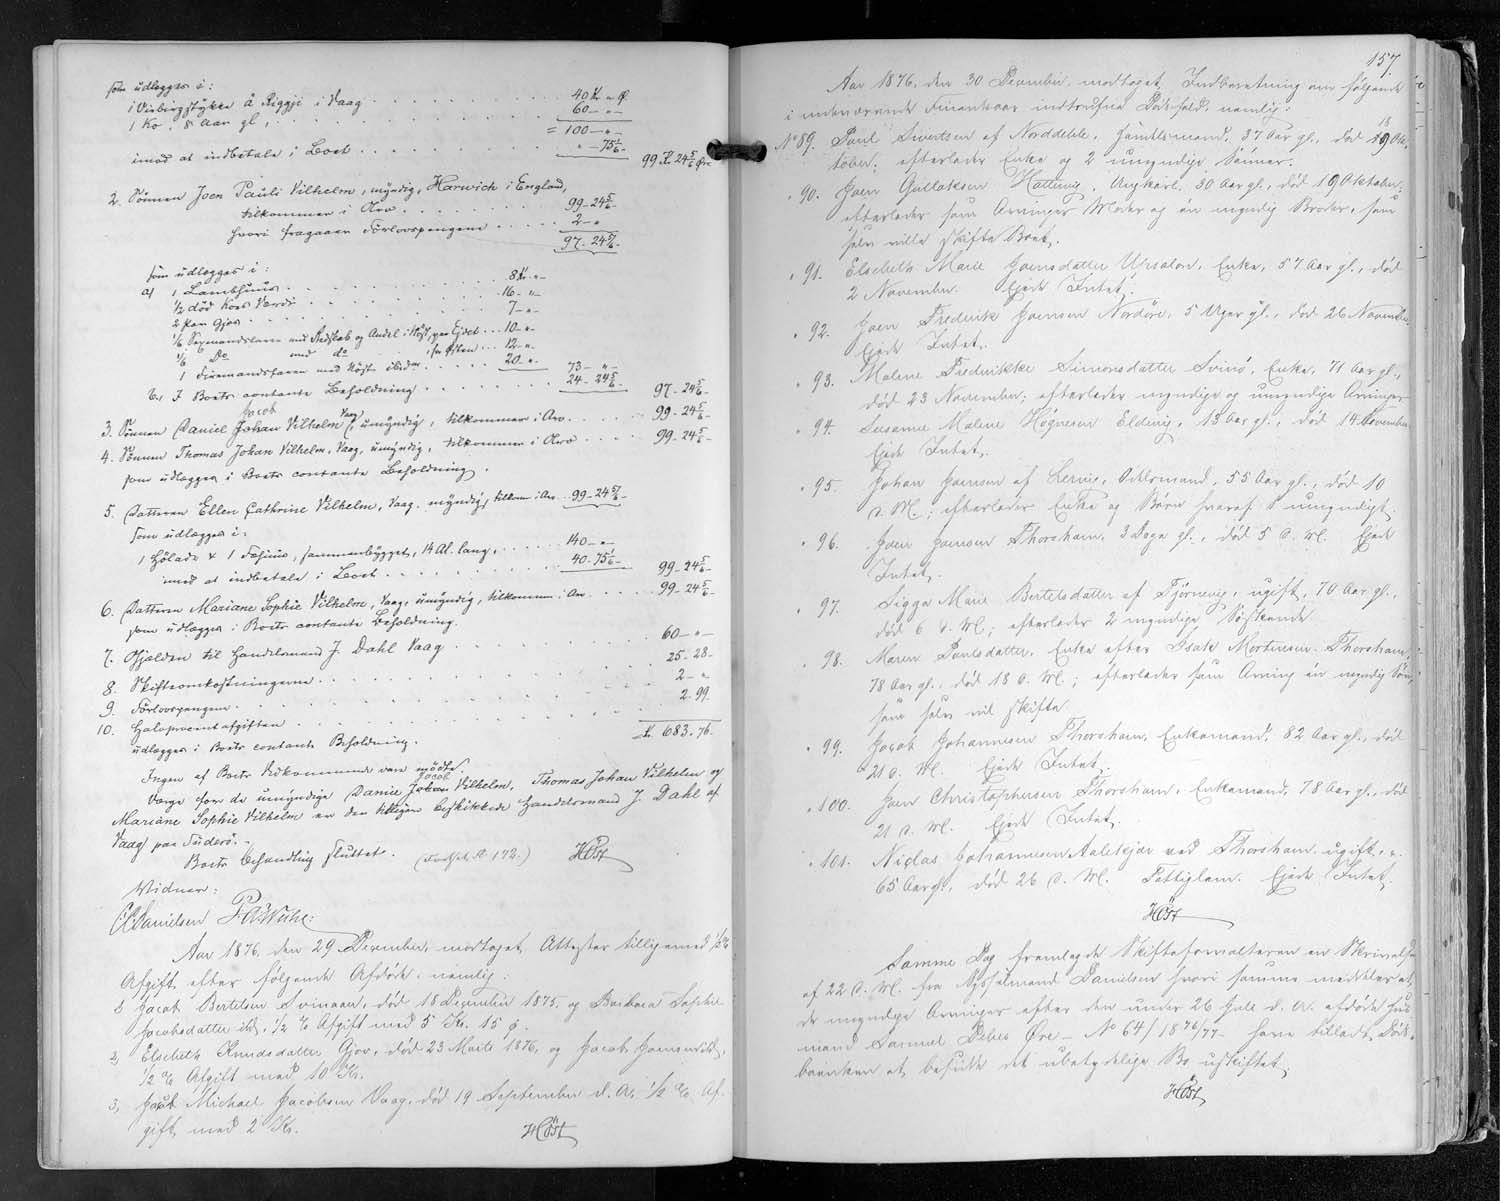 som udlægges i:
1 Udbøigstykke å Riggji i Vaag 40 Kr. " Ø.
1 Ko, 8 Aar gl., 60 — " —
= 100 — " —
imod at indbetale i Boet " — 75 1/6 —
99 Kr. 24 5/6 Øre
2. Sønnen Joen Pauli Vilhelm, myndig, Harwich i England,
tilkommer i Arv 99 — 24 5/6 —
hvori fragaaer Forlovspengene 2 — "
97. 24 5/6 —
som udlægges i:
af 1 Lambhuus 8 Kr. " —
1/2 død Koes Værdi 16 — " —
2 par Gjøs 7 — " —
1/6 Sexmandsfaren med Redskab og Andel i Nøst, paa Eidet 10 — " —
1/6 Do med do for Østen 12 — " —
1 Firemandsfaren med Nøst ibidm 20 — " . 73 — " —
b, I Boets contante Beholdning 24 — 24 5/6 — 97 — 24 5/6 —
3. Sønnen Daniel Jacob Vilhelm, Vaag, umyndig, tilkommer i Arv 99 — 24 5/6 —
4. Sønnen Thomas Johan Vilhelm, Vaag, umyndig, tilkommer i Arv 99 — 24 5/6 —
som udlægges i Boets contante Beholdning.
5. Datteren Ellen Cathrine Vilhelm, Vaag, myndig, tilkom. i Arv 99 — 24 5/6 —
som udlægges i:
1 Hølade & 1 Fæhuus, sammenbygget, 14 Al. lang, 140 — " —
imod at indbetale i Boet 40. 75 1/6 — 99 — 24 5/6 —
6. Datteren Mariane Sophie Vilhelm, Vaag, umyndig, tilkommer i Arv 99 — 24 5/6 —
som udlægges i Boets contante Beholdning.
7. Gjælden til Handelsmand J. Dahl Vaag 60 — " —
8. Skifteomkostningerne 25 — 28 —
9. Forlovspengene 2 — "
10. Halvprocentafgiften 2. 99.
udlægges i Boets contante Beholdning. Kr. 683. 76.
Ingen af Boets Vedkommende vare mødte.
Værge for de umyndige Daniel Jacob Vilhelm, Thomas Johan Vilhelm og
Mariane Sophie Vilhelm er den tidligere beskikkede Handelsmand J. Dahl af
Vaag paa Suderø. —
Boets Behandling sluttet. (Fortsat A 172.) Høst
Vidner:
CC Danielsen
Aar 1876, den 29 December, modtaget Attester tilligemed 1/2 %
Afgift efter følgende Afdøde, nemlig:
1, Jacob Bertelsen Svinaaen, død 18 December 1875, og Barbara Sophie
Jacobsdatter ibd., 1/2 % Afgift med 5 Kr. 15 ø.
2, Elsebeth Knudsdatter Gjov, død 23 Marts 1876, og Jacob Joensen ibd.,
1/2 % Afgift med 10 Kr.
3, Jacob Michael Jacobsen Vaag, død 19 September d. A., 1/2 % Af-
gift med 2 Kr. Høst
157.
Aar 1876, den 30 December, modtaget Indberetning om følgende
i nærværende Finantsaar indtrufne Dødsfald, nemlig:
No 89. Poul Sivertsen af Norddeble, Jämtlsmand, 37 Aar gl., død 18 Ok-
tober; efterlader Enke og 2 umyndige Sønner.
" 90. Joen Gullaksen Hattervig, Ungkarl, 30 Aar gl., død 19 Oktober;
efterlader som Arvinger Moder og en myndig Broder, som
selv ville skifte Boet.
" 91. Elsebeth Marie Joensdatter Velbestad, Enke, 57 Aar gl., død
2 November. Ejede Intet.
" 92. Joen Frederik Joensen Nordøre, 5 Uger gl., død 26 November.
Ejede Intet.
" 93. Malene Frederikke Simonsdatter Svinø, Enke, 71 Aar gl.,
død 23 November; efterlader myndige og umyndige Arvinger.
" 94. Susanne Malene Høgnesen Eldevig, 13 Aar gl., død 14 November.
Ejede Intet.
" 95. Johan Joensen af Lervig, Odelsmand, 55 Aar gl., død 10
d. M.; efterlader Enke og Børn hvoraf 1 umyndigt.
" 96. Joen Joensen Thorshavn, 3 Dage gl., død 5 d. M. Ejede
Intet.
" 97. Sigga Marie Bertelsdatter af Tjørnevig, ugift, 70 Aar gl.,
død 6 d. M.; efterlader 2 myndige Søskende.
" 98. Maren Poulsdatter, Enke efter Isak Mortensen Thorshavn,
78 Aar gl., død 18 d. M.; efterlader som Arving en myndig Søn,
som selv vil skifte.
" 99. Jacob Johannesen Thorshavn, Enkemand, 82 Aar gl., død
21 d. M. Ejede Intet.
" 100. Joen Christophersen Thorshavn, Enkemand, 78 Aar gl., død
21 d. M. Ejede Intet.
" 101. Niclas Johannesen Aalekjær ved Thorshavn, ugift,
65 Aar gl., død 26 d. M. Fattiglem. Ejede Intet.
Høst
Samme Dag fremlagde Skifteforvalteren en Skrivelse
af 22 d. M. fra Sysselmand Danielsen hvori samme meddeler at
de myndige Arvinger efter den under 26 Juli d. A. afdøde Huus-
mand Samuel Debes Øre — No 64/1876/77 — have tilladt Død-
boenken at besidde det ubetydelige Bo uskiftet.
Høst